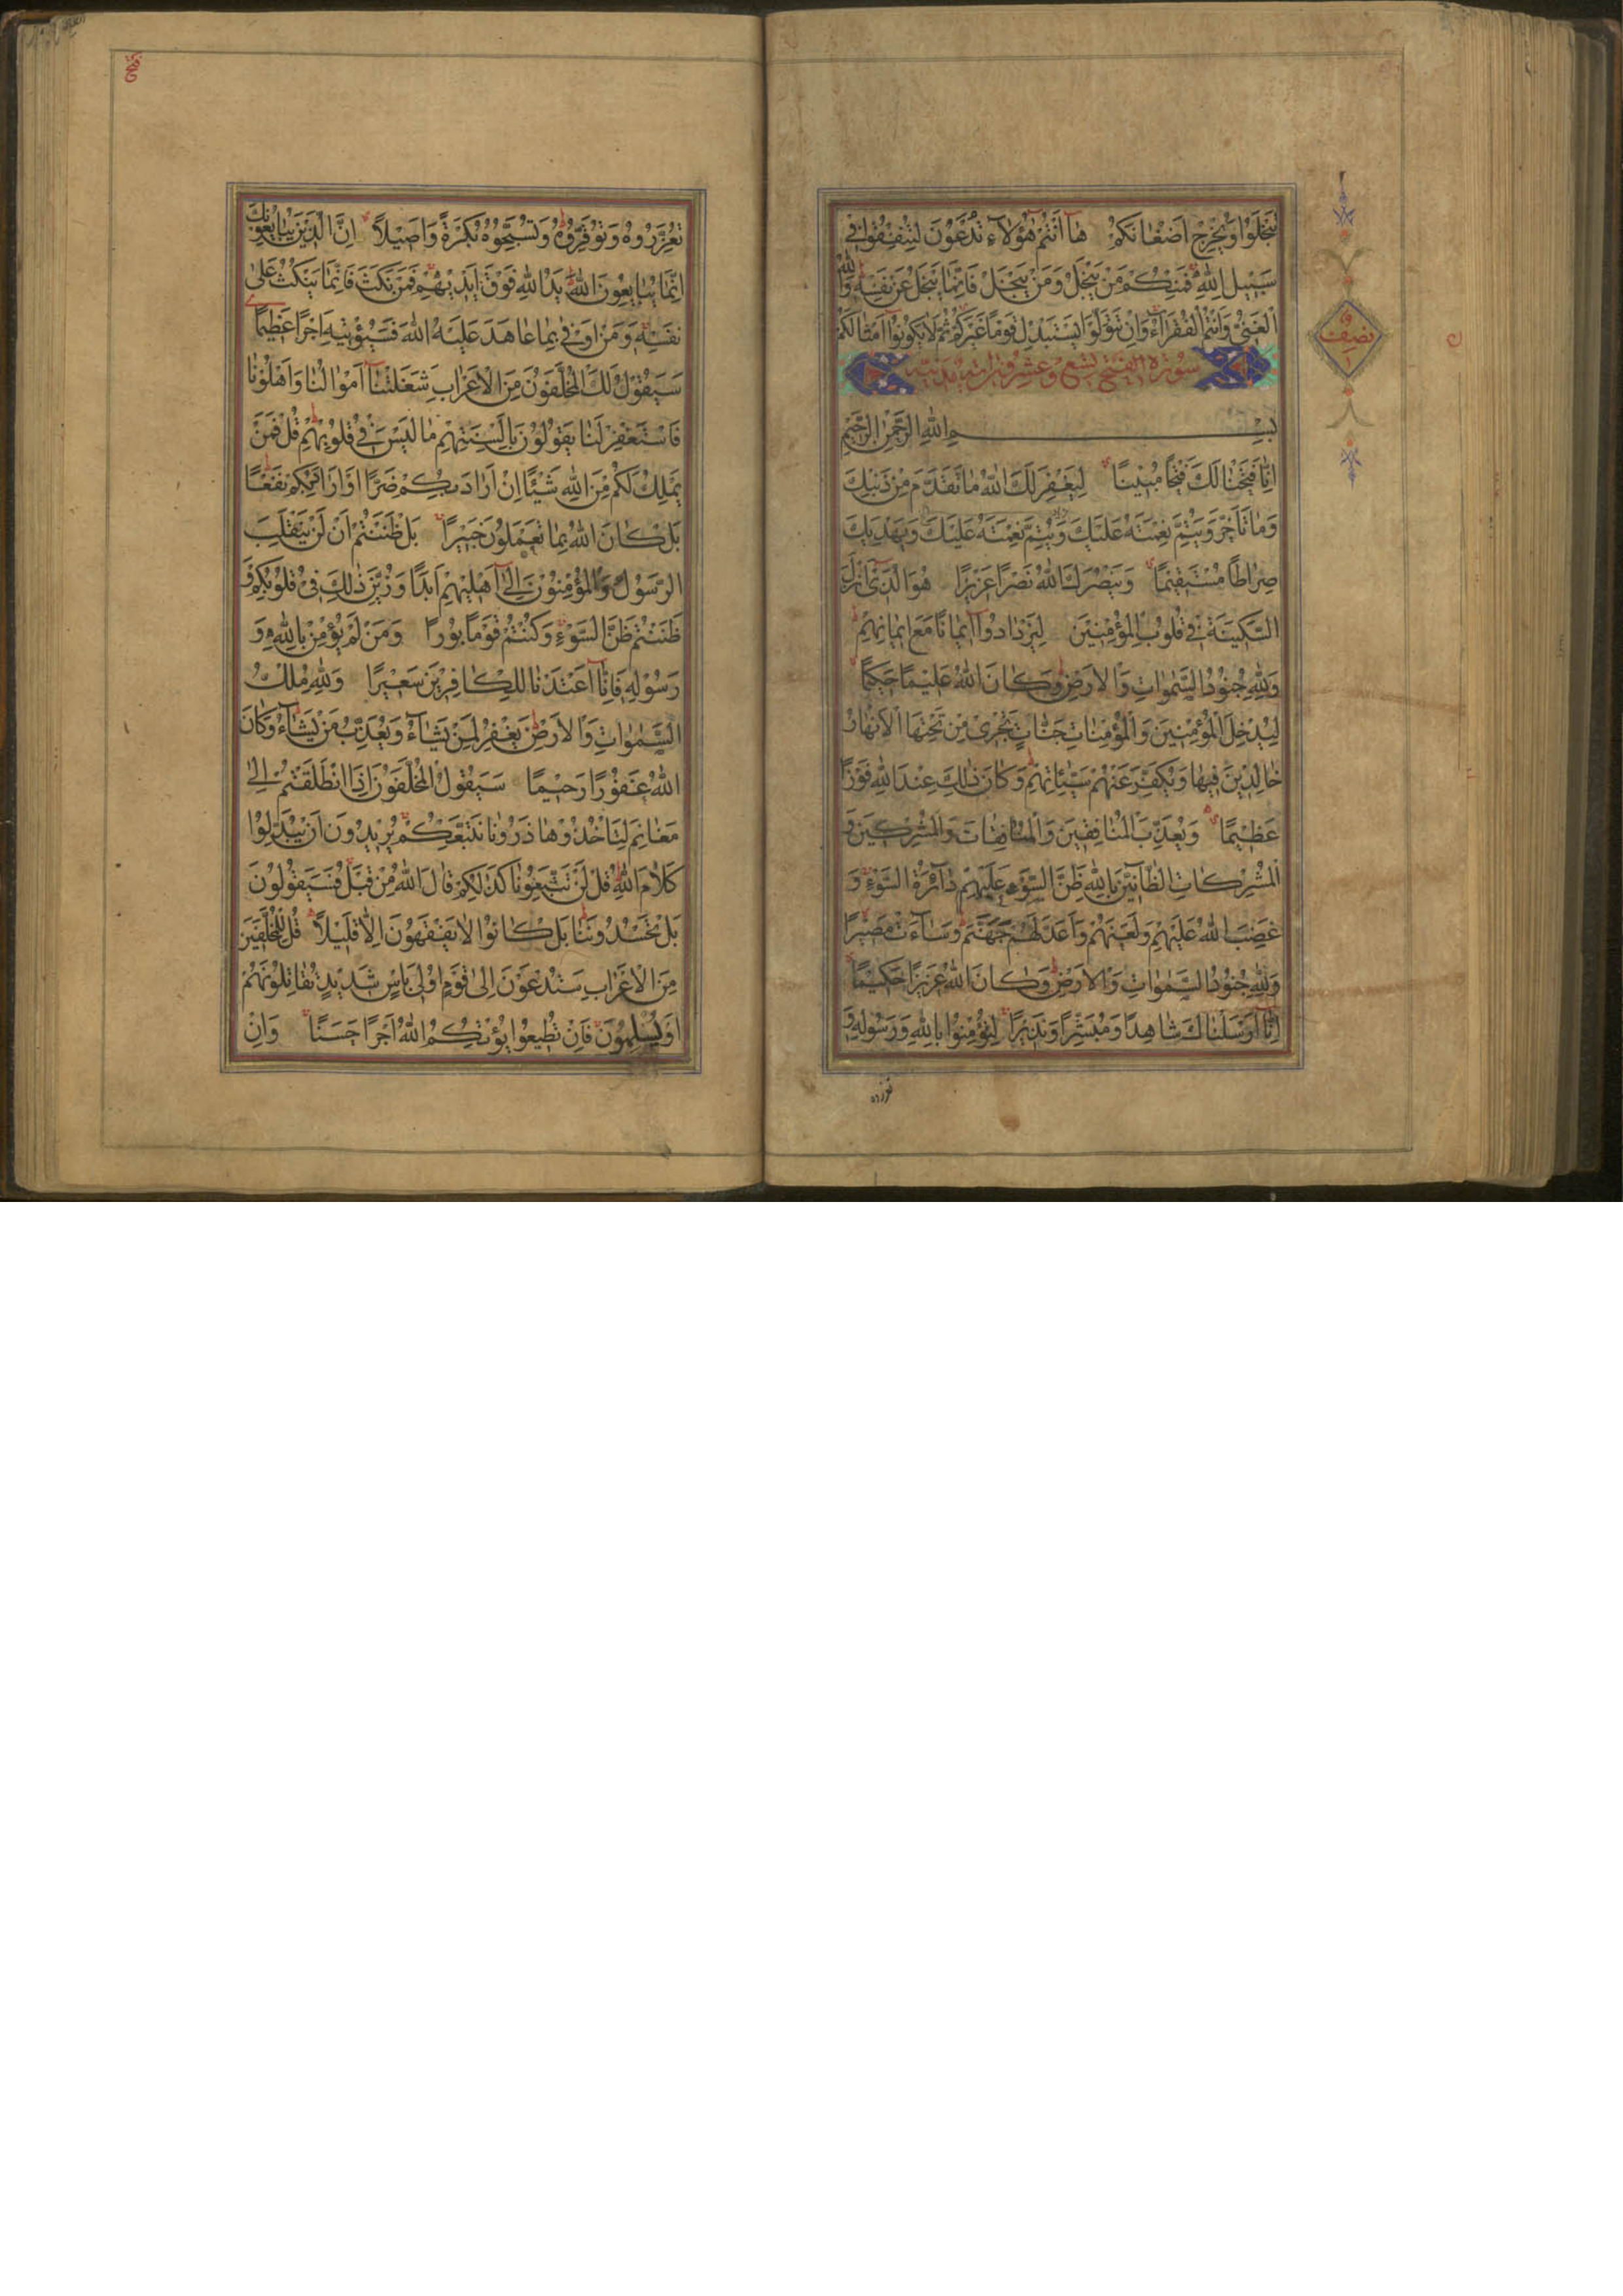 تَبْخَلُوا وَيُخْرِجْ اَضْغَانَكُمْ هَا اَنْتُمْ هٰؤُلَاءِ تُدْعَوْنَ لِتُنْفِقُوا فِي
سَبِيلِ اللّٰهِ فَمِنْكُمْ مَنْ يَبْخَلُ وَمَنْ يَبْخَلْ فَاِنَّمَا يَبْخَلُ عَنْ نَفْسِهِ وَاللّٰهُ
الْغَنِيُّ وَاَنْتُمُ الْفُقَرَاءُ وَاِنْ تَتَوَلَّوْا يَسْتَبْدِلْ قَوْمًا غَيْرَكُمْ ثُمَّ لَا يَكُونُوا اَمْثَالَكُمْ
سورة الفتح تسع وعشرون اية مدنية
بِسْمِ اللّٰهِ الرَّحْمٰنِ الرَّحِيمِ
اِنَّا فَتَحْنَا لَكَ فَتْحًا مُبِينًا لِيَغْفِرَ لَكَ اللّٰهُ مَا تَقَدَّمَ مِنْ ذَنْبِكَ
وَمَا تَاَخَّرَ وَيُتِمَّ نِعْمَتَهُ عَلَيْكَ وَيُتِمَّ نِعْمَتَهُ عَلَيْكَ وَيَهْدِيَكَ
صِرَاطًا مُسْتَقِيمًا وَيَنْصُرَكَ اللّٰهُ نَصْرًا عَزِيزًا هُوَ الَّذِي اَنْزَلَ
السَّكِينَةَ فِي قُلُوبِ الْمُؤْمِنِينَ لِيَزْدَادُوا اِيمَانًا مَعَ اِيمَانِهِمْ
وَلِلّٰهِ جُنُودُ السَّمٰوَاتِ وَالْاَرْضِ وَكَانَ اللّٰهُ عَلِيمًا حَكِيمًا
لِيُدْخِلَ الْمُؤْمِنِينَ وَالْمُؤْمِنَاتِ جَنَّاتٍ تَجْرِي مِنْ تَحْتِهَا الْاَنْهَارُ
خَالِدِينَ فِيهَا وَيُكَفِّرَ عَنْهُمْ سَيِّئَاتِهِمْ وَكَانَ ذٰلِكَ عِنْدَ اللّٰهِ فَوْزًا
عَظِيمًا وَيُعَذِّبَ الْمُنَافِقِينَ وَالْمُنَافِقَاتِ وَالْمُشْرِكِينَ وَ
الْمُشْرِكَاتِ الظَّانِّينَ بِاللّٰهِ ظَنَّ السَّوْءِ عَلَيْهِمْ دَائِرَةُ السَّوْءِ وَ
غَضِبَ اللّٰهُ عَلَيْهِمْ وَلَعَنَهُمْ وَاَعَدَّ لَهُمْ جَهَنَّمَ وَسَاءَتْ مَصِيرًا
وَلِلّٰهِ جُنُودُ السَّمٰوَاتِ وَالْاَرْضِ وَكَانَ اللّٰهُ عَزِيزًا حَكِيمًا
اِنَّا اَرْسَلْنَاكَ شَاهِدًا وَمُبَشِّرًا وَنَذِيرًا لِتُؤْمِنُوا بِاللّٰهِ وَرَسُولِهِ وَ
نصف
تُعَزِّرُوهُ وَتُوَقِّرُوهُ وَتُسَبِّحُوهُ بُكْرَةً وَاَصِيلًا اِنَّ الَّذِينَ يُبَايِعُونَكَ
اِنَّمَا يُبَايِعُونَ اللّٰهَ يَدُ اللّٰهِ فَوْقَ اَيْدِيهِمْ فَمَنْ نَكَثَ فَاِنَّمَا يَنْكُثُ عَلٰى
نَفْسِهِ وَمَنْ اَوْفٰى بِمَا عَاهَدَ عَلَيْهُ اللّٰهَ فَسَيُؤْتِيهِ اَجْرًا عَظِيمًا
سَيَقُولُ لَكَ الْمُخَلَّفُونَ مِنَ الْاَعْرَابِ شَغَلَتْنَا اَمْوَالُنَا وَاَهْلُونَا
فَاسْتَغْفِرْ لَنَا يَقُولُونَ بِاَلْسِنَتِهِمْ مَا لَيْسَ فِي قُلُوبِهِمْ قُلْ فَمَنْ
يَمْلِكُ لَكُمْ مِنَ اللّٰهِ شَيْئًا اِنْ اَرَادَ بِكُمْ ضَرًّا اَوْ اَرَادَ بِكُمْ نَفْعًا
بَلْ كَانَ اللّٰهُ بِمَا تَعْمَلُونَ خَبِيرًا بَلْ ظَنَنْتُمْ اَنْ لَنْ يَنْقَلِبَ
الرَّسُولُ وَالْمُؤْمِنُونَ اِلٰى اَهْلِيهِمْ اَبَدًا وَزُيِّنَ ذٰلِكَ فِي قُلُوبِكُمْ وَ
ظَنَنْتُمْ ظَنَّ السَّوْءِ وَكُنْتُمْ قَوْمًا بُورًا وَمَنْ لَمْ يُؤْمِنْ بِاللّٰهِ وَ
رَسُولِهِ فَاِنَّا اَعْتَدْنَا لِلْكَافِرِينَ سَعِيرًا وَلِلّٰهِ مُلْكُ
السَّمٰوَاتِ وَالْاَرْضِ يَغْفِرُ لِمَنْ يَشَاءُ وَيُعَذِّبُ مَنْ يَشَاءُ وَكَانَ
اللّٰهُ غَفُورًا رَحِيمًا سَيَقُولُ الْمُخَلَّفُونَ اِذَا انْطَلَقْتُمْ اِلٰى
مَغَانِمَ لِتَاْخُذُوهَا ذَرُونَا نَتَّبِعْكُمْ يُرِيدُونَ اَنْ يُبَدِّلُوا
كَلَامَ اللّٰهِ قُلْ لَنْ تَتَّبِعُونَا كَذٰلِكُمْ قَالَ اللّٰهُ مِنْ قَبْلُ فَسَيَقُولُونَ
بَلْ تَحْسُدُونَنَا بَلْ كَانُوا لَا يَفْقَهُونَ اِلَّا قَلِيلًا قُلْ لِلْمُخَلَّفِينَ
مِنَ الْاَعْرَابِ سَتُدْعَوْنَ اِلٰى قَوْمٍ اُولِي بَاْسٍ شَدِيدٍ تُقَاتِلُونَهُمْ
اَوْ يُسْلِمُونَ فَاِنْ تُطِيعُوا يُؤْتِكُمُ اللّٰهُ اَجْرًا حَسَنًا وَاِنْ